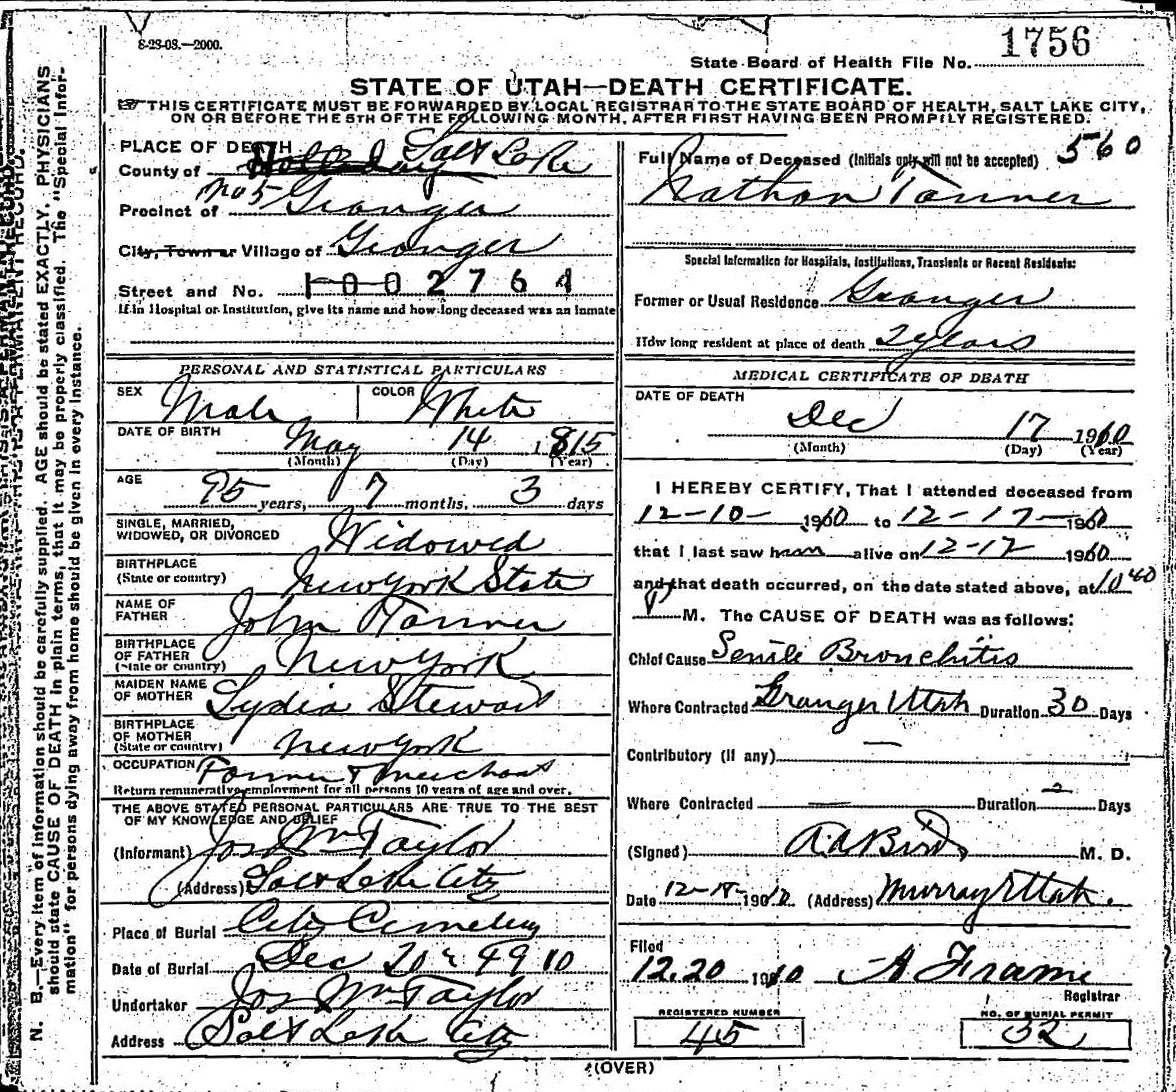 8-23-08.—2000.
State Board of Health File No. 1756
STATE OF UTAH—DEATH CERTIFICATE.
THIS CERTIFICATE MUST BE FORWARDED BY LOCAL REGISTRAR TO THE STATE BOARD OF HEALTH, SALT LAKE CITY,
ON OR BEFORE THE 5TH OF THE FOLLOWING MONTH, AFTER FIRST HAVING BEEN PROMPTLY REGISTERED.
PLACE OF DEATH
County of Salt Lake
No 5
Precinct of Granger
City, Town or Village of Granger
Street and No. 1002764
If in Hospital or Institution, give its name and how long deceased was an inmate
PERSONAL AND STATISTICAL PARTICULARS
SEX Male COLOR White
DATE OF BIRTH May 14 1815
(Month) (Day) (Year)
AGE 95 years, 7 months, 3 days
SINGLE, MARRIED,
WIDOWED, OR DIVORCED Widowed
BIRTHPLACE
(State or country) New York State
NAME OF
FATHER John Tanner
BIRTHPLACE
OF FATHER
(State or country) New York
MAIDEN NAME
OF MOTHER Lydia Stewart
BIRTHPLACE
OF MOTHER
(State or country) New York
OCCUPATION Farmer & Merchant
Return remunerative employment for all persons 10 years of age and over.
THE ABOVE STATED PERSONAL PARTICULARS ARE TRUE TO THE BEST
OF MY KNOWLEDGE AND BELIEF
(Informant) Jos Wm Taylor
(Address) Salt Lake City
Place of Burial City Cemetery
Date of Burial Dec 20 1910
Undertaker Jos Wm Taylor
Address Salt Lake City
Full Name of Deceased (Initials only will not be accepted) 560
Nathan Tanner
Special Information for Hospitals, Institutions, Transients or Recent Residents:
Former or Usual Residence Granger
How long resident at place of death 2 years
MEDICAL CERTIFICATE OF DEATH
DATE OF DEATH
Dec 17 1910
(Month) (Day) (Year)
I HEREBY CERTIFY, That I attended deceased from
12-10- 1910 to 12-17-1910
that I last saw him alive on 12-17 1910
and that death occurred, on the date stated above, at 10 40
P M. The CAUSE OF DEATH was as follows:
Chief Cause Senile Bronchitis
Where Contracted Granger Utah Duration 30 Days
Contributory (if any) —
Where Contracted — Duration Days
(Signed) A.A. Bird M. D.
Date 12-18-1910 (Address) Murray Utah.
Filed
12.20 1910 A Frame
Registrar
REGISTERED NUMBER
45
NO. OF BURIAL PERMIT
32
(OVER)
N. B.—Every item of information should be carefully supplied. AGE should be stated EXACTLY. PHYSICIANS
should state CAUSE OF DEATH in plain terms, that it may be properly classified. The "Special Infor-
mation" for persons dying away from home should be given in every instance.